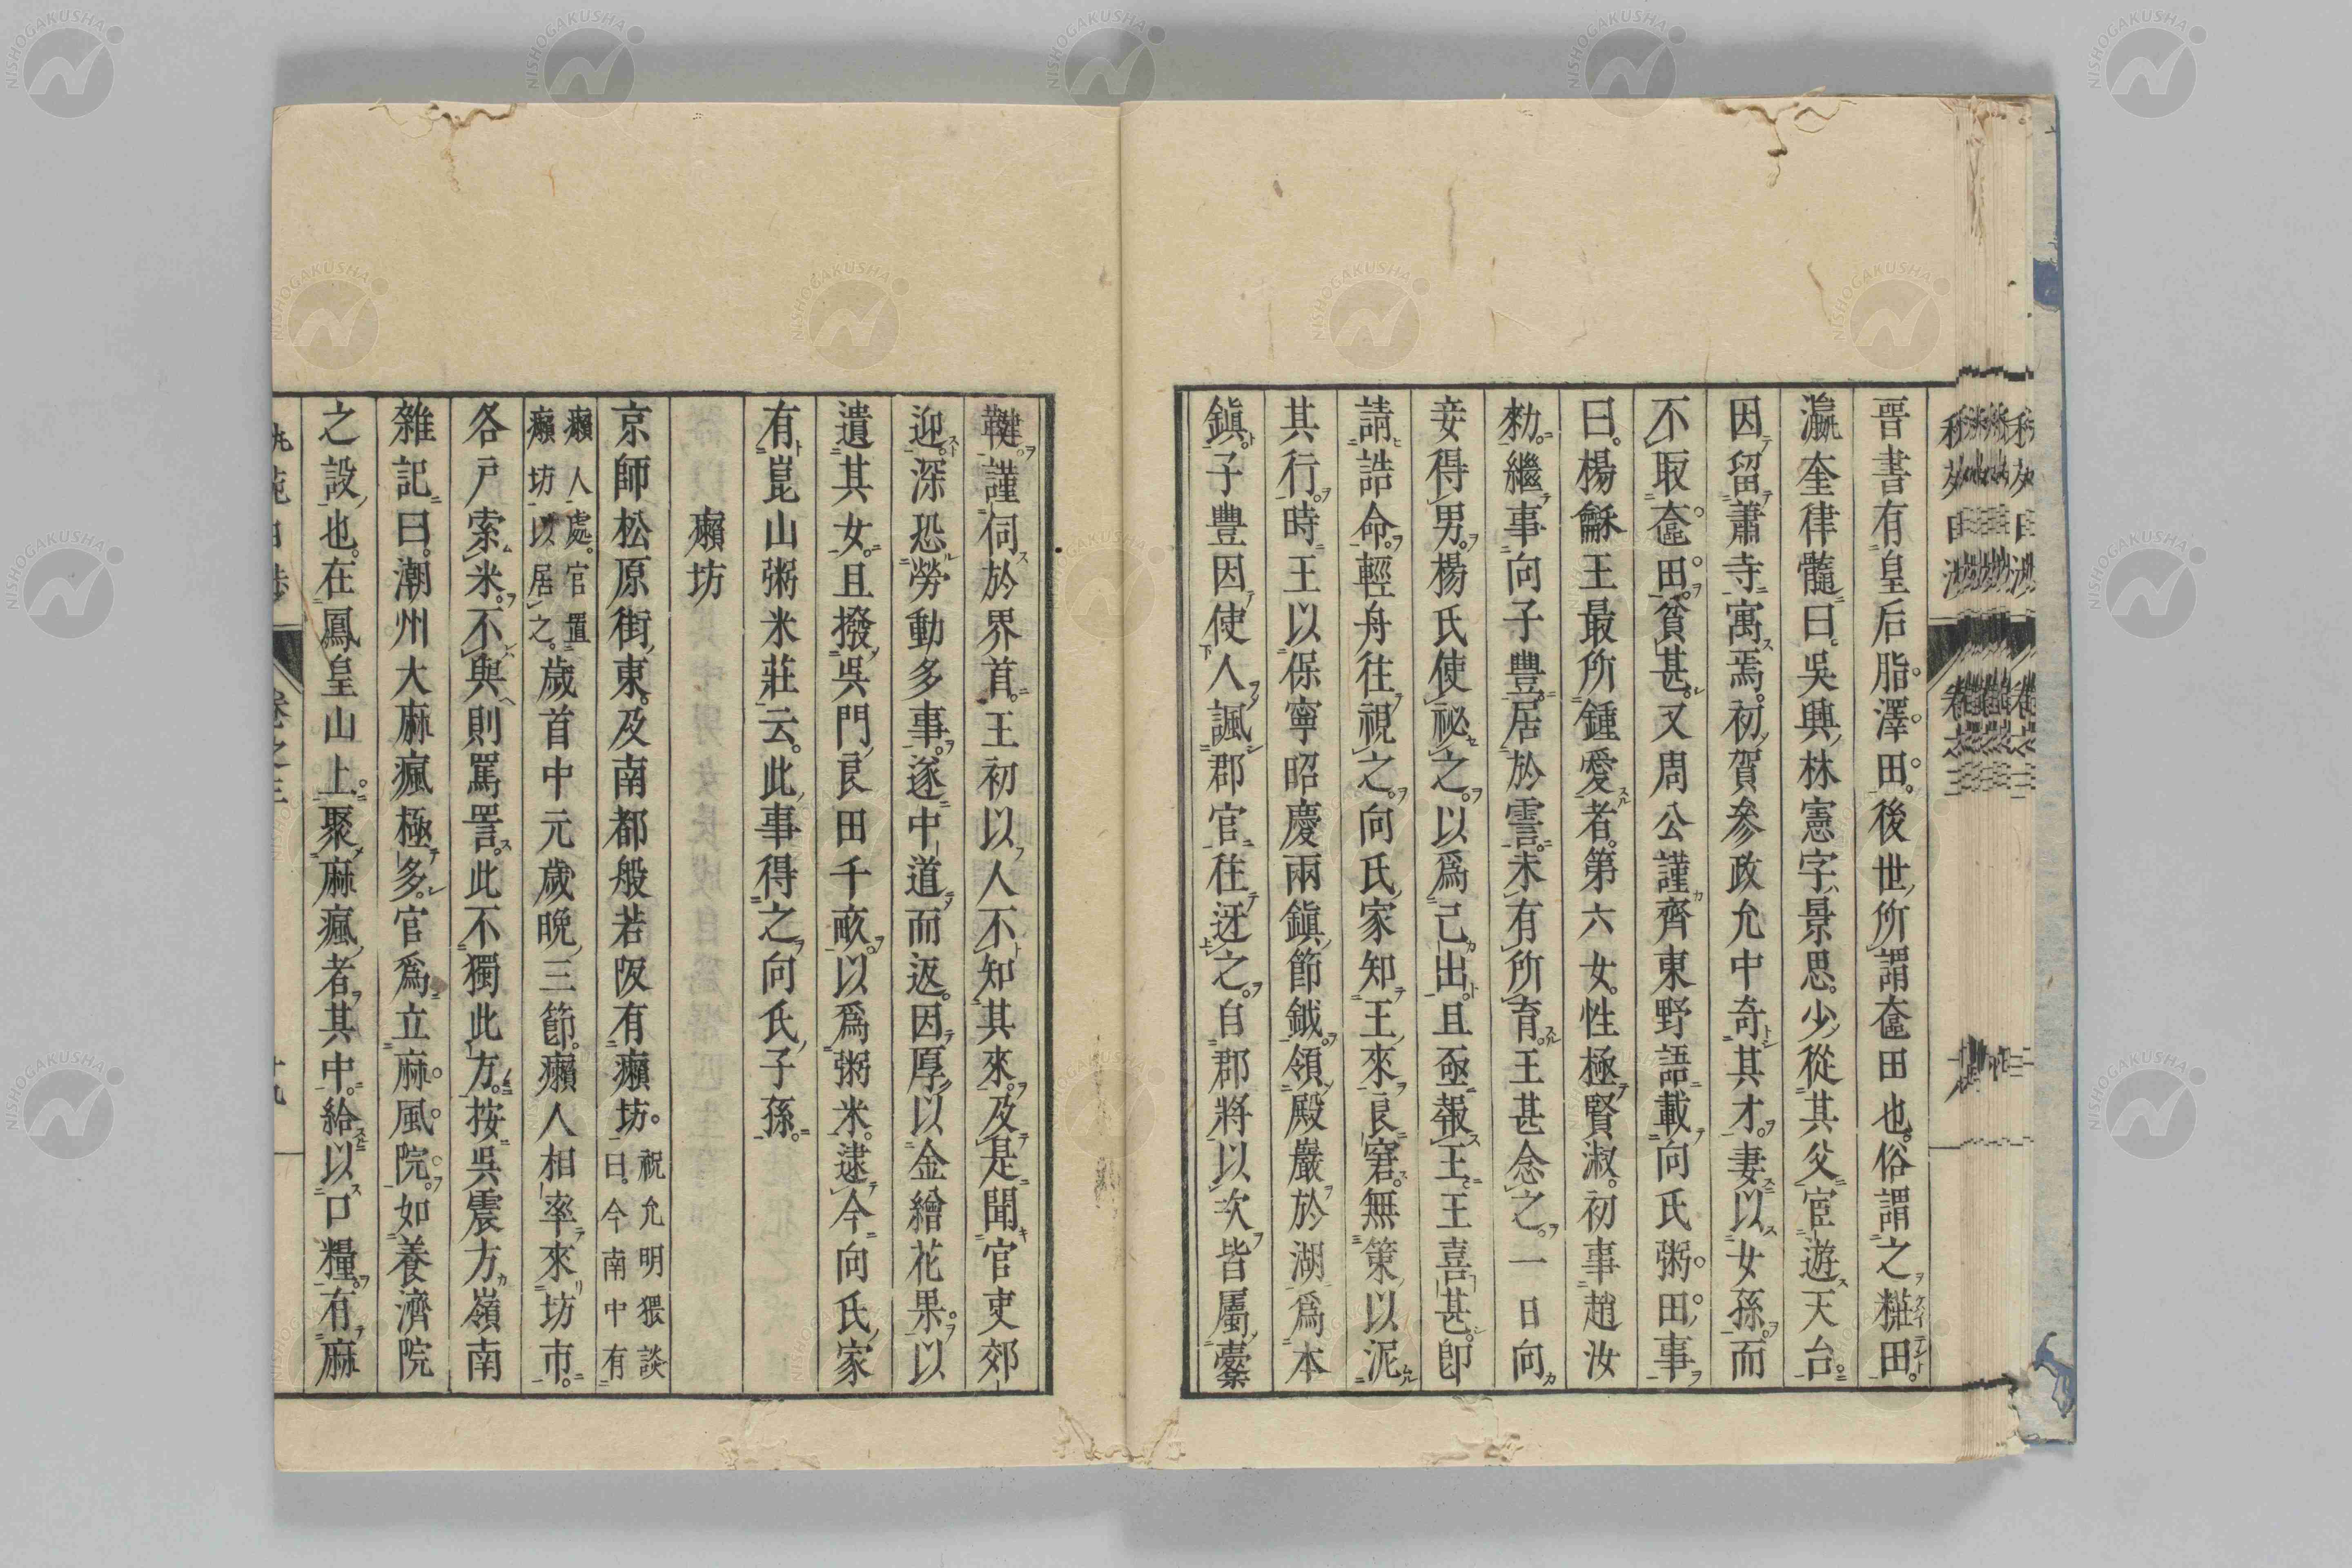 晋書有皇后脂澤田後世所謂奩田也俗謂之糚田
瀛奎律髓曰吳興林憲字景思少從其父宦遊天台
因留蕭寺寓焉初賀參政允中奇其才妻以女孫而
不取奩田貧甚又周公謹齊東野語載向氏粥田事
曰楊龢王最所鍾愛者第六女性極賢淑初事趙汝
勑繼事向子豐居於霅未有所育王甚念之一日向
妾得男楊氏使祕之以爲己出且亟報王王喜甚卽
請誥命輕舟往視之向氏家知王來良窘無策以泥
其行時王以保寧昭慶兩鎭節鉞領殿巖於湖爲本
鎭子豐因使人諷郡官往迓之自郡將以次皆屬櫜
鞬謹伺於界首王初以人不知其來及是聞官吏郊
迎深恐勞動多事遂中道而返因厚以金繒花果以
遺其女且撥吳門良田千畝以爲粥米逮今向氏家
有崑山粥米莊云此事得之向氏子孫
癩坊
京師松原街東及南都般若阪有癩坊祝允明猥談曰今南中有
癩人處官置癩坊以居之歲首中元歲晚三節癩人相率來坊市
各戶索米不與則罵詈此不獨此方按吳震方嶺南
雜記曰潮州大麻瘋極多官爲立麻風院如養濟院
之設也在鳳皇山上聚麻瘋者其中給以口糧有麻
卷之三
NISHOGAKUSHA